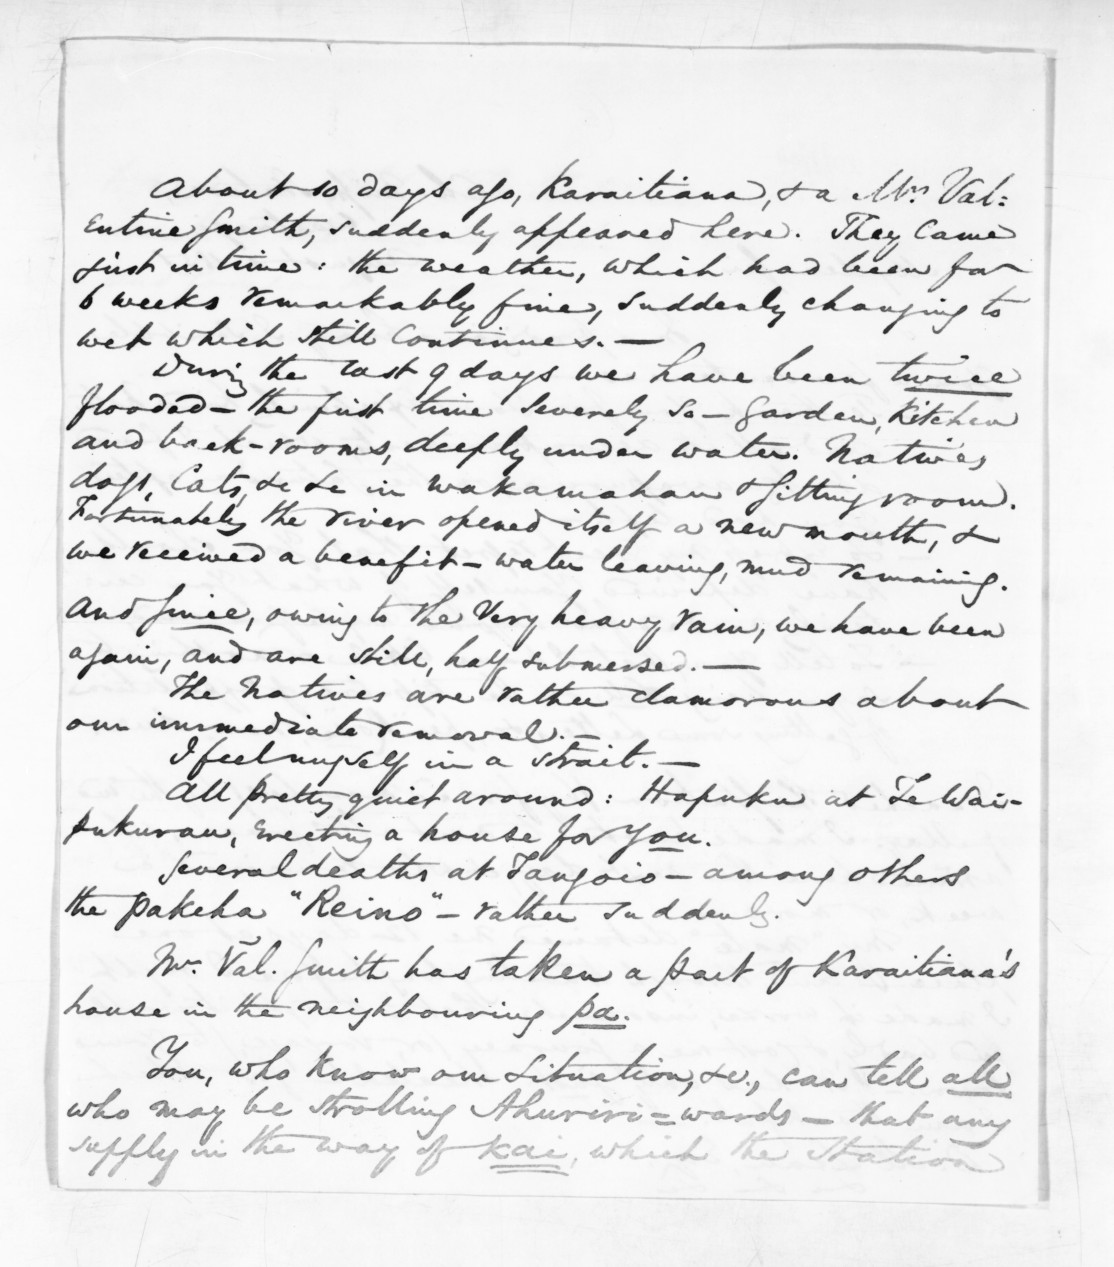 About 10 days ago, Karaitiana, & a Mr. Val=
entine Smith, suddenly appeared here. They came
just in time: the weather, which had been for
6 weeks remarkably fine, suddenly changing to
wet which still continues. —
During the last 9 days we have been twice
flooded — the first time severely so — garden, kitchen
and back-rooms, deeply under water. Natives
dogs, Cats, &c &c in wakamahau & sitting room.
Fortunately the river opened itself a new mouth, &
we received a benefit — water leaving, mud remaining.
And since, owing to the very heavy rain, we have been
again, and are still, half submersed. —
The Natives are rather clamorous about
our immediate removal. —
I feel myself in a strait. —
All pretty quiet around: Hapuku at Te Wai-
pukurau, erecting a house for you.
Several deaths at Tangoio — among others
the pakeha "Reino" — rather suddenly.
Mr. Val. Smith has taken a part of Karaitiana's
house in the neighbouring pa.
You, who know our situation, &c., can tell all
who may be strolling Ahuriri=wards — that any
supply in the way of kai, which the Station